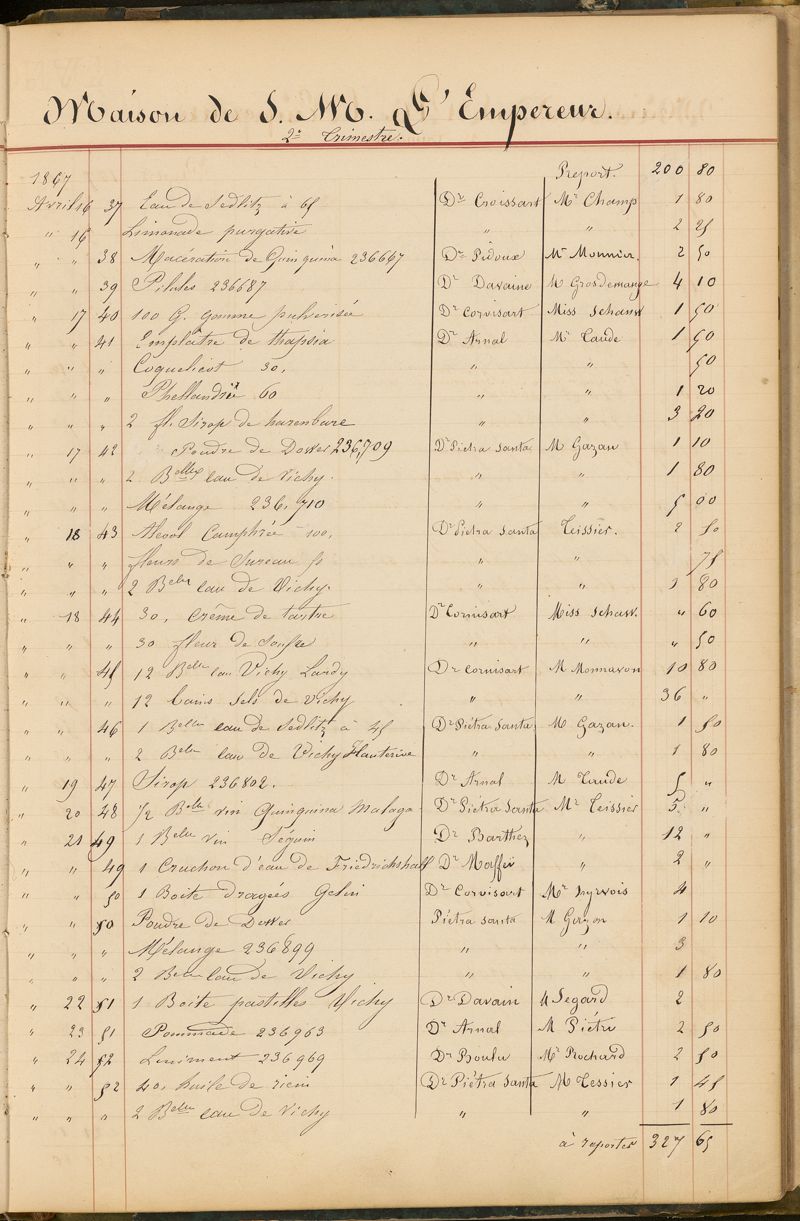 Maison de S. M. L'Empereur.
2e Trimestre.
1867 Report. 200 80
Avril 16 37 Eau de Sedlitz à 65 Dr Croissart Mr Champ 1 80
" 16 Limonade purgative " " 2 25
" " 38 Macération de Quinquina 236667 Dr Pidoux Mr Monnier. 2 50
" " 39 Pilules 236687 Dr Davaine M Grosdemange 4 10
" 17 40 100 G. gomme pulverisée Dr Corvisart Miss Schaw 1 50
" " 41 Emplâtre de thapsia Dr Arnal Mr Taude 1 50
" " " Coquelicot 30. " " 50
" " " Phellandrie 60 " " 1 20
" " " 2 fl. Sirop de " " 3 20
" 17 42 Poudre de Dower 236,709 Dr Pietra Santa M Gazan 1 10
" " " 2 Belles eau de Vichy. " " 1 80
" " " Mélange 236.710 " " 5 00
" 18 43 Alcool Camphrée 100. Dr Pietra Santa Teissier. 2 50
" " " fleurs de Sureau 50 " " 75
" " " 2 Belles eau de Vichy. " " 1 80
" 18 44 30. Crême de tartre Dr Corvisart Miss Schaw. " 60
" " " 30 fleur de Soufre " " " 50
" " 45 12 Belles eau Vichy Lardy Dr Corvisart M Monnavon 10 80
" " " 12 bains Sels de Vichy " " 36 "
" " 46 1 Belle eau de Sedlitz à 45 Dr Piétra Santa M Gazan. 1 50
" " " 2 Belles eau de Vichy Hauterive " " 1 80
" 19 47 Sirop 236802. Dr Arnal M Taude 5 "
" 20 48 1/2 Belle vin Quinquina Malaga Dr Piétra Santa Mr Teissier 5 "
" 21 49 1 Belle vin Séguin Dr Barthez " 12 "
" " 49 1 Cruchon d'eau de Friedrichshall Dr Maffei " 2 "
" " 50 1 Boite dragées Gelin Dr Corvisart Mr 4
" " 50 Poudre de Dower Piétra Santa M Gazon 1 10
" " " Mélange 236899 " " 3
" " " 2 Belles eau de Vichy " " 1 80
" 22 51 1 Boite pastilles Vichy Dr Davain M Segard 2
" 23 51 Pommade 236963 Dr Arnal M Piétri 2 50
" 24 52 Liniment 236969 Dr Boulu Mr Prochard 2 50
" " 52 40. huile de ricin Dr Piétra Santa Mr Tessier 1 45
" " " 2 Belles eau de Vichy " " 1 80
à reporter 327 65